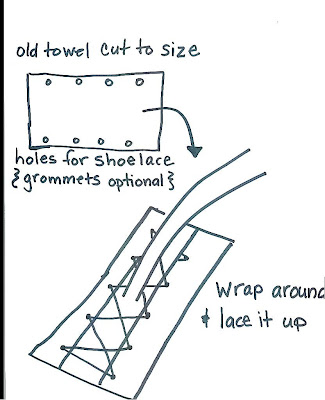 old towel cut to size
holes for shoelace
{grommets optional}
Wrap around
& lace it up